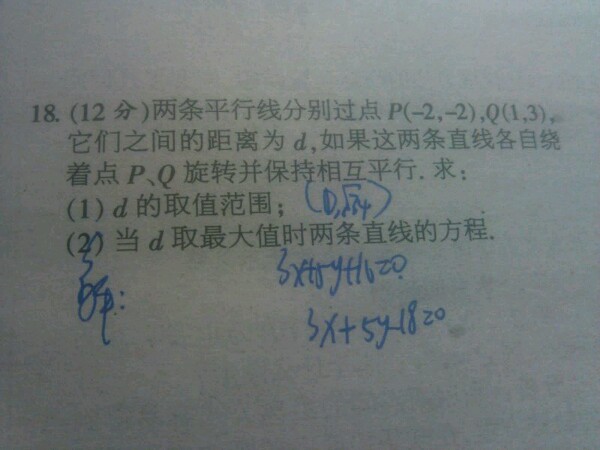 18. (12 分)两条平行线分别过点 P(-2,-2),Q(1,3),
它们之间的距离为 d,如果这两条直线各自绕
着点 P、Q 旋转并保持相互平行. 求:
(1) d 的取值范围; (0,√34)
(2) 当 d 取最大值时两条直线的方程.
解: 3x+5y+16=0
3x+5y-18=0